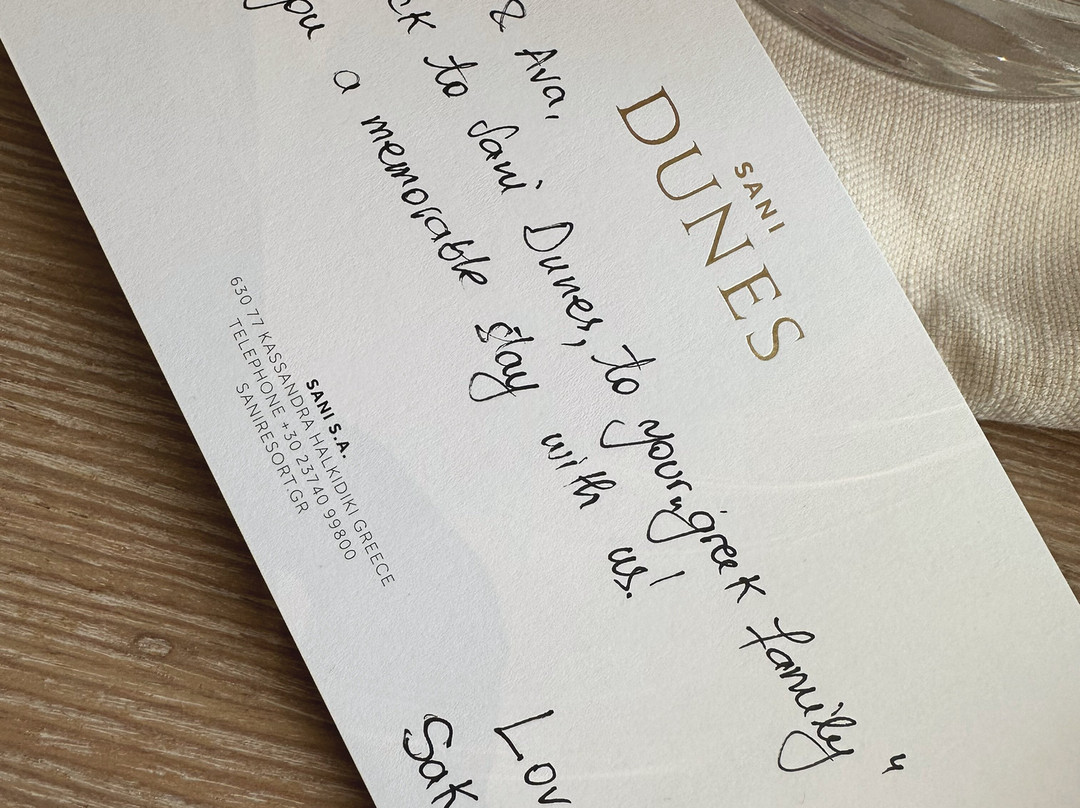 SANI
DUNES
& Ava,
ck to Sani Dunes, to your „greek family“
you a memorable stay with us!
Lov
Sak
SANI S.A.
630 77 KASSANDRA HALKIDIKI GREECE
TELEPHONE +30 23740 99800
SANIRESORT.GR